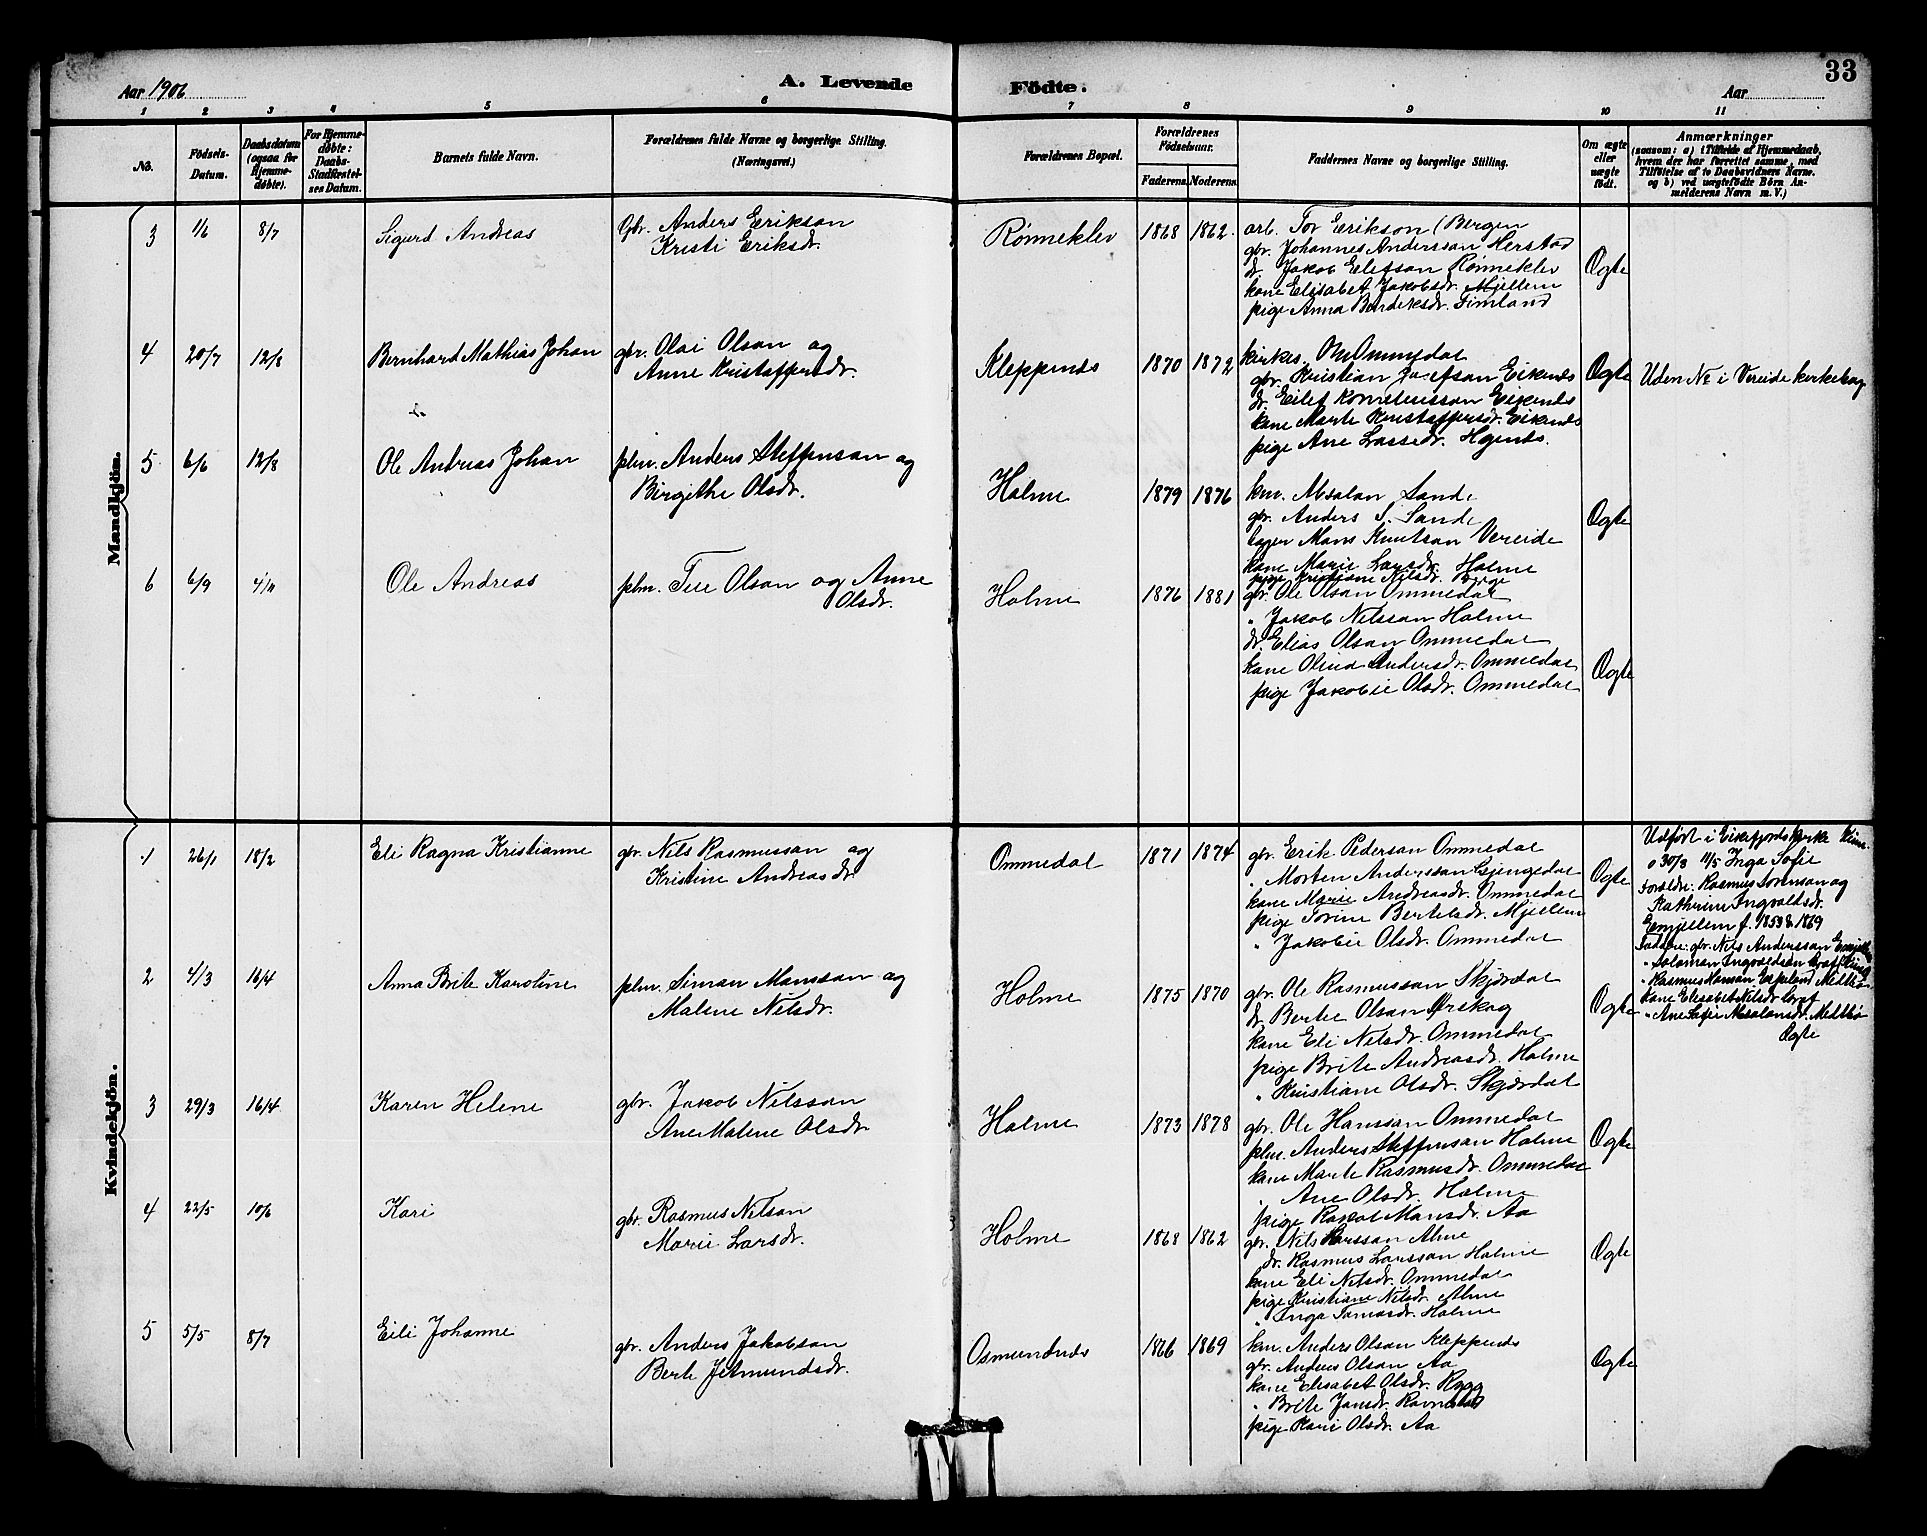 33
Aar 1906
A. Levende
Födte.
Aar
1 2 3 4 5 6 7 8 9 10 11
No.
Fødsels-Datum.
Daabsdatum (ogsaa for Hjemme-døbte).
For Hjemme-døbte: Daabs-Stadfæstel-ses Datum.
Barnets fulde Navn.
Forældrenes fulde Navne og borgerlige Stilling. (Næringsvei.)
Forældrenes Bopæl.
Forældrenes Födselsaar.
Faderens. Moderens.
Faddernes Navne og borgerlige Stilling.
Om ægte eller uægte født.
Anmærkninger
(saasom: a) i Tilfælde af Hjemmedaab, hvem der har forrettet samme, med Tilføielse af to Daabsvidners Navne, og b) ved uægtefødte Börn Anmelderens Navn m. V.)
Mandkjön.
3 1/6 8/7 Sigurd Andreas
Gbr. Anders Erikson
Kristi Eriksdr.
Rønneklev 1868 1862.
arb. Tor Erikson (Bergen
gbr. Johannes Andersson Herstad
dr. Jakob Elefson Rønneklev
kone Elisabet Jakobsdr. Mjellem
pige Anna Bendiksdr. Fimland
Ægte
4 20/7 12/8 Bernhard Mathias Johan
gbr. Olai Olson og
Anne Kristoffersdr.
Kleppenes 1870 1872
kirkes. Ommedal
gbr. Kristian Eikenes
dr. Eilef Korneliusson Eikenes
kone Marte Kristoffersdr. Eikenes
pige Ane Lassedr. Hyenes.
Ægte
Uden No i Vereide kirkebog
5 6/6 12/8 Ole Andreas Johan
plm. Anders Steffenson og
Birgithe Olsdr.
Holme 1879 1876
km. Absalon Sande
gbr. Anders S. Sande
Mons Knutson Vereide
kone Marie Larsdr. Holme
pige Kristiane Nilsdr. Berge
Ægte
6 6/9 4/11 Ole Andreas
plm. Olson og Anne
Olsdr.
Holme 1876 1881
gbr. Ole Olson Ommedal
" Jakob Nilsson Holme
dr. Elias Olson Ommedal
kone Olina Andersdr. Ommedal
pige Jakobie Olsdr. Ommedal
Ægte
Kvindekjön.
1 26/1 18/2 Eli Ragna Kristianne
gbr. Nils Rasmusson og
Kristine Andreasdr.
Ommedal 1871 1874
gbr. Erik Pederson Ommedal
" Morten Andersson Gjengedal
kone Marie Andreasdr. Ommedal
pige Sørine Bertelsdr. Mjellem
" Jakobie Olsdr. Ommedal
Ægte
Udført i Eikefjords kirke
o 30/3 11/5 Inga Sofie
Foreldre: Rasmus Sørenson og
Kathrine Ingvaldsdr.
Endjellem f. 1859 & 1869
Faddere: gbr. Nils Andersson
" Salomon Ingvaldsen
" Rasmus Espeland
kone Elisabet Nilsdr.
" Ane Sofie Absalonsdr. Medbø
Ægte
2 4/3 16/4 Anna Brite Karoline
plm. Simon Monsson og
Malene Nilsdr.
Holme 1875 1870
gbr. Ole Rasmusson Skjerdal
dr. Bertel Olson Ørskog
kone Eli Nilsdr. Ommedal
pige Brite Andreasdr. Holme
" Kristiane Olsdr. Skjerdal
Ægte
3 29/3 16/4 Karen Helene
gbr. Jakob Nilsson
Ane Malene Olsdr
Holme 1873 1878
gbr. Ole Hansson Ommedal
plm. Anders Steffenson Holme
kone Marte Rasmusdr. Ommedal
" Ane Olsdr. Holme
pige Rakel Monsdr. Aa
Ægte
4 22/5 10/6 Kari
gbr. Rasmus Nilson
Marie Larsdr.
Holme 1868 1862
gbr. Nils Larsson Alme
dr. Rasmus Larsson Holme
kone Eli Nilsdr. Ommedal
pige Kristiane Nilsdr. Alme
" Inga Tomasdr. Holme
Ægte
5 5/5 8/7 Eili Johanne
gbr. Anders Jakobson
Berte Jetmundsdr.
Osmundnes 1866 1869
km. Anders Olson Kleppenes
gbr. Anders Olson Aa
kone Elisabet Olsdr. Rygg
" Brite Jonsdr. Ravnestad
pige Kari Olsdr. Aa
Ægte